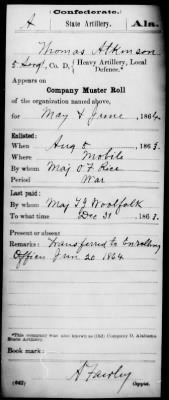 Confederate.
A State Artillery. Ala.
Thomas Atkinson
5 Sergt, Co. D, Heavy Artillery, Local Defence.*
Appears on
Company Muster Roll
of the organization named above,
for May & June, 1864.
Enlisted:
When Aug 5, 1863.
Where Mobile
By whom Maj O F Rice
Period War
Last paid:
By whom Maj T J Woolfolk
To what time Dec 31, 1863.
Present or absent
Remarks: Transferred to Enrolling
Officer Jun 20 1864
*This company was also known as (Old) Company D, Alabama
State Artillery.
Book mark:
A Fawley
(642) Copyist.